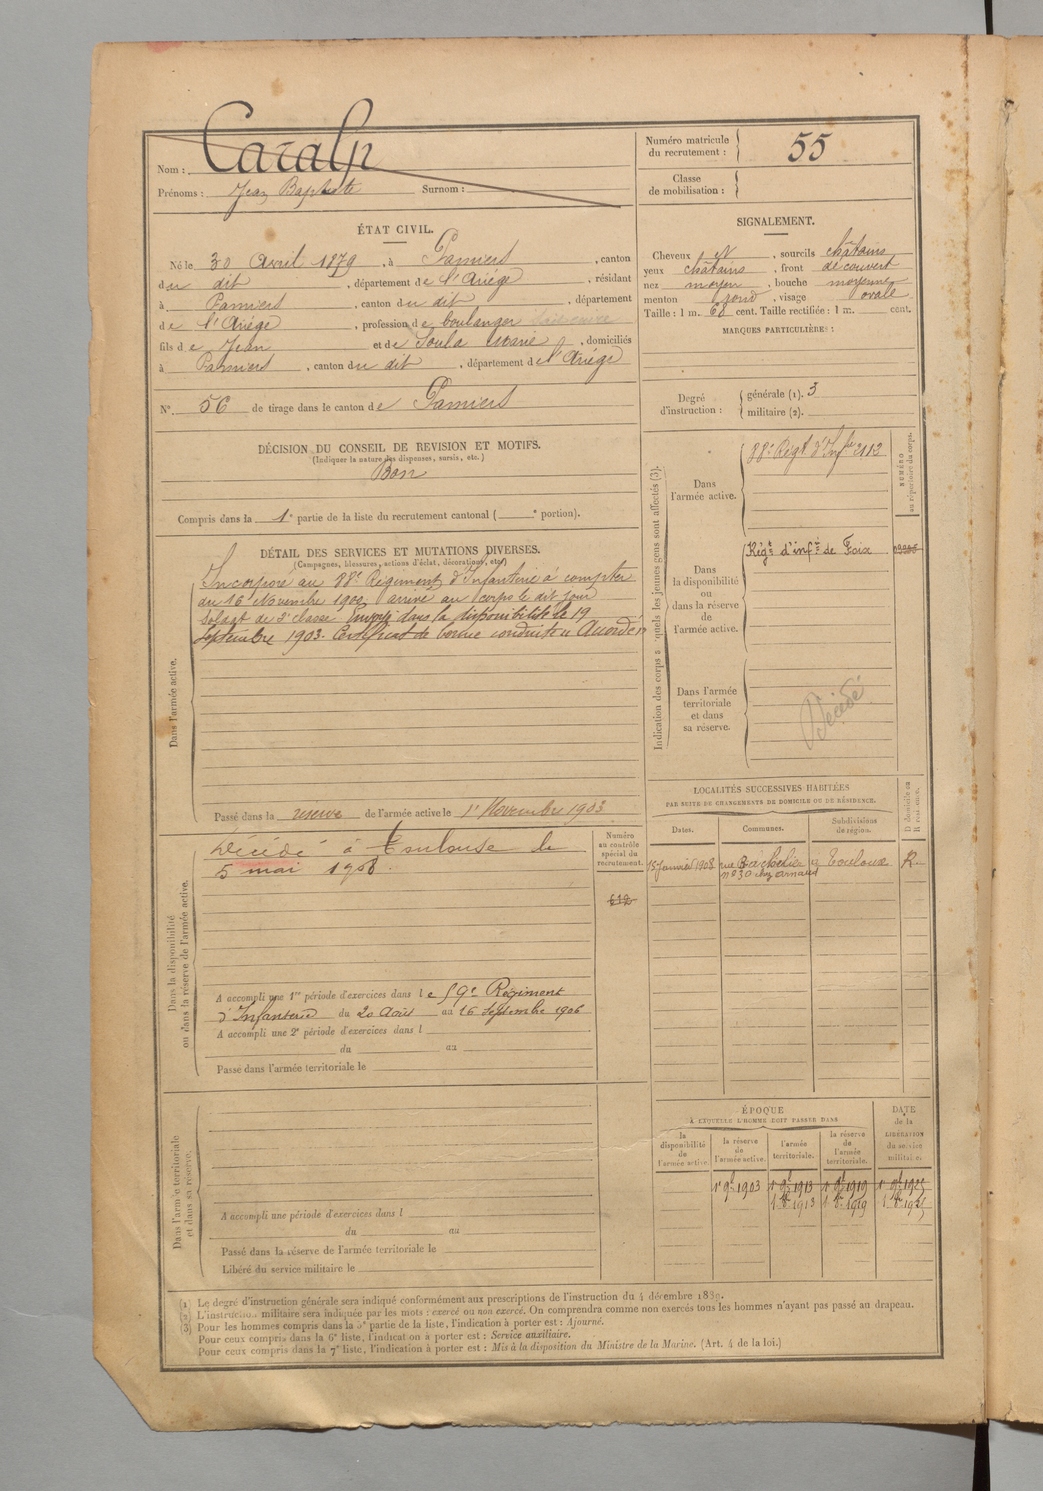 Nom : Caralp
Prénoms : Jean Baptiste Surnom :
Numéro matricule du recrutement : 55
Classe de mobilisation :
ÉTAT CIVIL.
Né le 30 Avril 1879, à Pamiers, canton
du dit, département de l'Ariège, résidant
à Pamiers, canton du dit, département
de l'Ariège, profession de boulanger
fils de Jean et de Soula Marie, domiciliés
à Pamiers, canton du dit, département de l'Ariège
N° 56 de tirage dans le canton de Pamiers
SIGNALEMENT.
Cheveux et, sourcils châtains
yeux châtains, front découvert
nez moyen, bouche moyenne
menton rond, visage ovale
Taille : 1 m. 68 cent. Taille rectifiée : 1 m. cent.
MARQUES PARTICULIÈRES :
Degré d'instruction : générale (1). 3
militaire (2).
DÉCISION DU CONSEIL DE REVISION ET MOTIFS.
(Indiquer la nature des dispenses, sursis, etc.)
Bon
Compris dans la 1e partie de la liste du recrutement cantonal ( e portion).
DÉTAIL DES SERVICES ET MUTATIONS DIVERSES.
(Campagnes, blessures, actions d'éclat, décorations, etc.)
Dans l'armée active.
Incorporé au 88e Régiment d'Infanterie à compter
du 16 Novembre 1902, arrivé au corps le dit jour
Soldat de 2e classe envoyé dans la disponibilité le 19
Septembre 1903. Certificat de bonne conduite Accordé
Passé dans la réserve de l'armée active le 1er Novembre 1903
Indication des corps auxquels les jeunes gens sont affectés (3).
NUMÉRO au répertoire du corps.
Dans l'armée active.
88e Regt d'Infie 2113
Dans la disponibilité ou dans la réserve de l'armée active.
Régt d'infie de Foix
Dans l'armée territoriale et dans sa réserve.
Décédé
LOCALITÉS SUCCESSIVES HABITÉES
PAR SUITE DE CHANGEMENTS DE DOMICILE OU DE RÉSIDENCE.
Dates. Communes. Subdivisions de région. D domicile ou R résidence.
15 Janvier 1908 rue Bachelier Toulouse R.
n° 30 chez Arnaud
Dans la disponibilité ou dans la réserve de l'armée active.
Numéro au contrôle spécial du recrutement.
612
Décédé à Toulouse le
5 mai 1908.
A accompli une 1re période d'exercices dans le 59e Régiment
d'Infanterie du 20 Août au 16 Septembre 1906
A accompli une 2e période d'exercices dans l
du au
Passé dans l'armée territoriale le
Dans l'armée territoriale et dans sa réserve.
A accompli une période d'exercices dans l
du au
Passé dans la réserve de l'armée territoriale le
Libéré du service militaire le
ÉPOQUE
À LAQUELLE L'HOMME DOIT PASSER DANS
la disponibilité de l'armée active. la réserve de l'armée active. l'armée territoriale. la réserve de l'armée territoriale. DATE de la LIBÉRATION du service militaire.
1er 9bre 1903 1er 9bre 1913 1er 9bre 1919 1er 9bre 1925
1913 1919 1925
(1) Le degré d'instruction générale sera indiqué conformément aux prescriptions de l'instruction du 4 décembre 1889.
(2) L'instruction militaire sera indiquée par les mots : exercé ou non exercé. On comprendra comme non exercés tous les hommes n'ayant pas passé au drapeau.
(3) Pour les hommes compris dans la 5e partie de la liste, l'indication à porter est : Ajourné.
Pour ceux compris dans la 6e liste, l'indication à porter est : Service auxiliaire.
Pour ceux compris dans la 7e liste, l'indication à porter est : Mis à la disposition du Ministre de la Marine. (Art. 4 de la loi.)